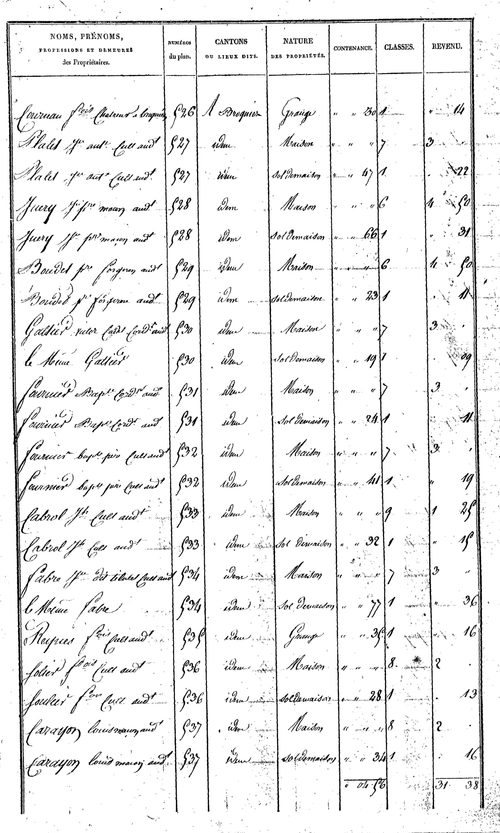 NOMS, PRÉNOMS, PROFESSIONS ET DEMEURES des Propriétaires. | NUMÉROS du plan. | CANTONS OU LIEUX DITS. | NATURE DES PROPRIÉTÉS. | CONTENANCE. | CLASSES. | REVENU.
526 Grange " " 30 1 " 14
Platet cult and^t 527 idem Maison " " " 7 3 "
Platet cult and^t 527 idem sol demaison " " 47 1 " 22
Jury maçon and^t 528 idem Maison " " " 6 4 50
Jury maçon and^t 528 idem sol demaison " " 66 1 " 31
Boudet forgeron and^t 529 idem Maison " " " 6 4 50
Boudet forgeron and^t 529 idem sol demaison " " 23 1 " 11
Galtier Cord^r and^t 530 idem Maison " " " 7 3 "
le Même Galtier 530 idem sol demaison " " 19 1 " 09
fournier Bap^te Cord^r and^t 531 idem Maison " " " 7 3 "
fournier Bap^te Cord^r and^t 531 idem sol demaison " " 24 1 " 11
fournier bap^te père Cult and^t 532 idem Maison " " " 7 3 "
fournier bap^te père Cult and^t 532 idem sol demaison " " 41 1 " 19
Cabrol Cult and^t 533 idem Maison " " " 9 1 25
Cabrol Cult and^t 533 idem sol demaison " " 32 1 " 15
fabre dit Cult and^t 534 idem Maison " " " 7 3 "
le Même fabre 534 idem sol demaison " " 77 1 " 36
Roques f^cois Cult and^t 535 idem Grange " " 35 1 " 16
f^cois Cult and^t 536 idem Maison " " " 8 2 "
f^cois Cult and^t 536 idem sol demaison " " 28 1 " 13
Carayon louis maçon and^t 537 idem Maison " " " 8 2 "
Carayon louis maçon and^t 537 idem sol demaison " " 34 1 " 16
" 04 56 31 38